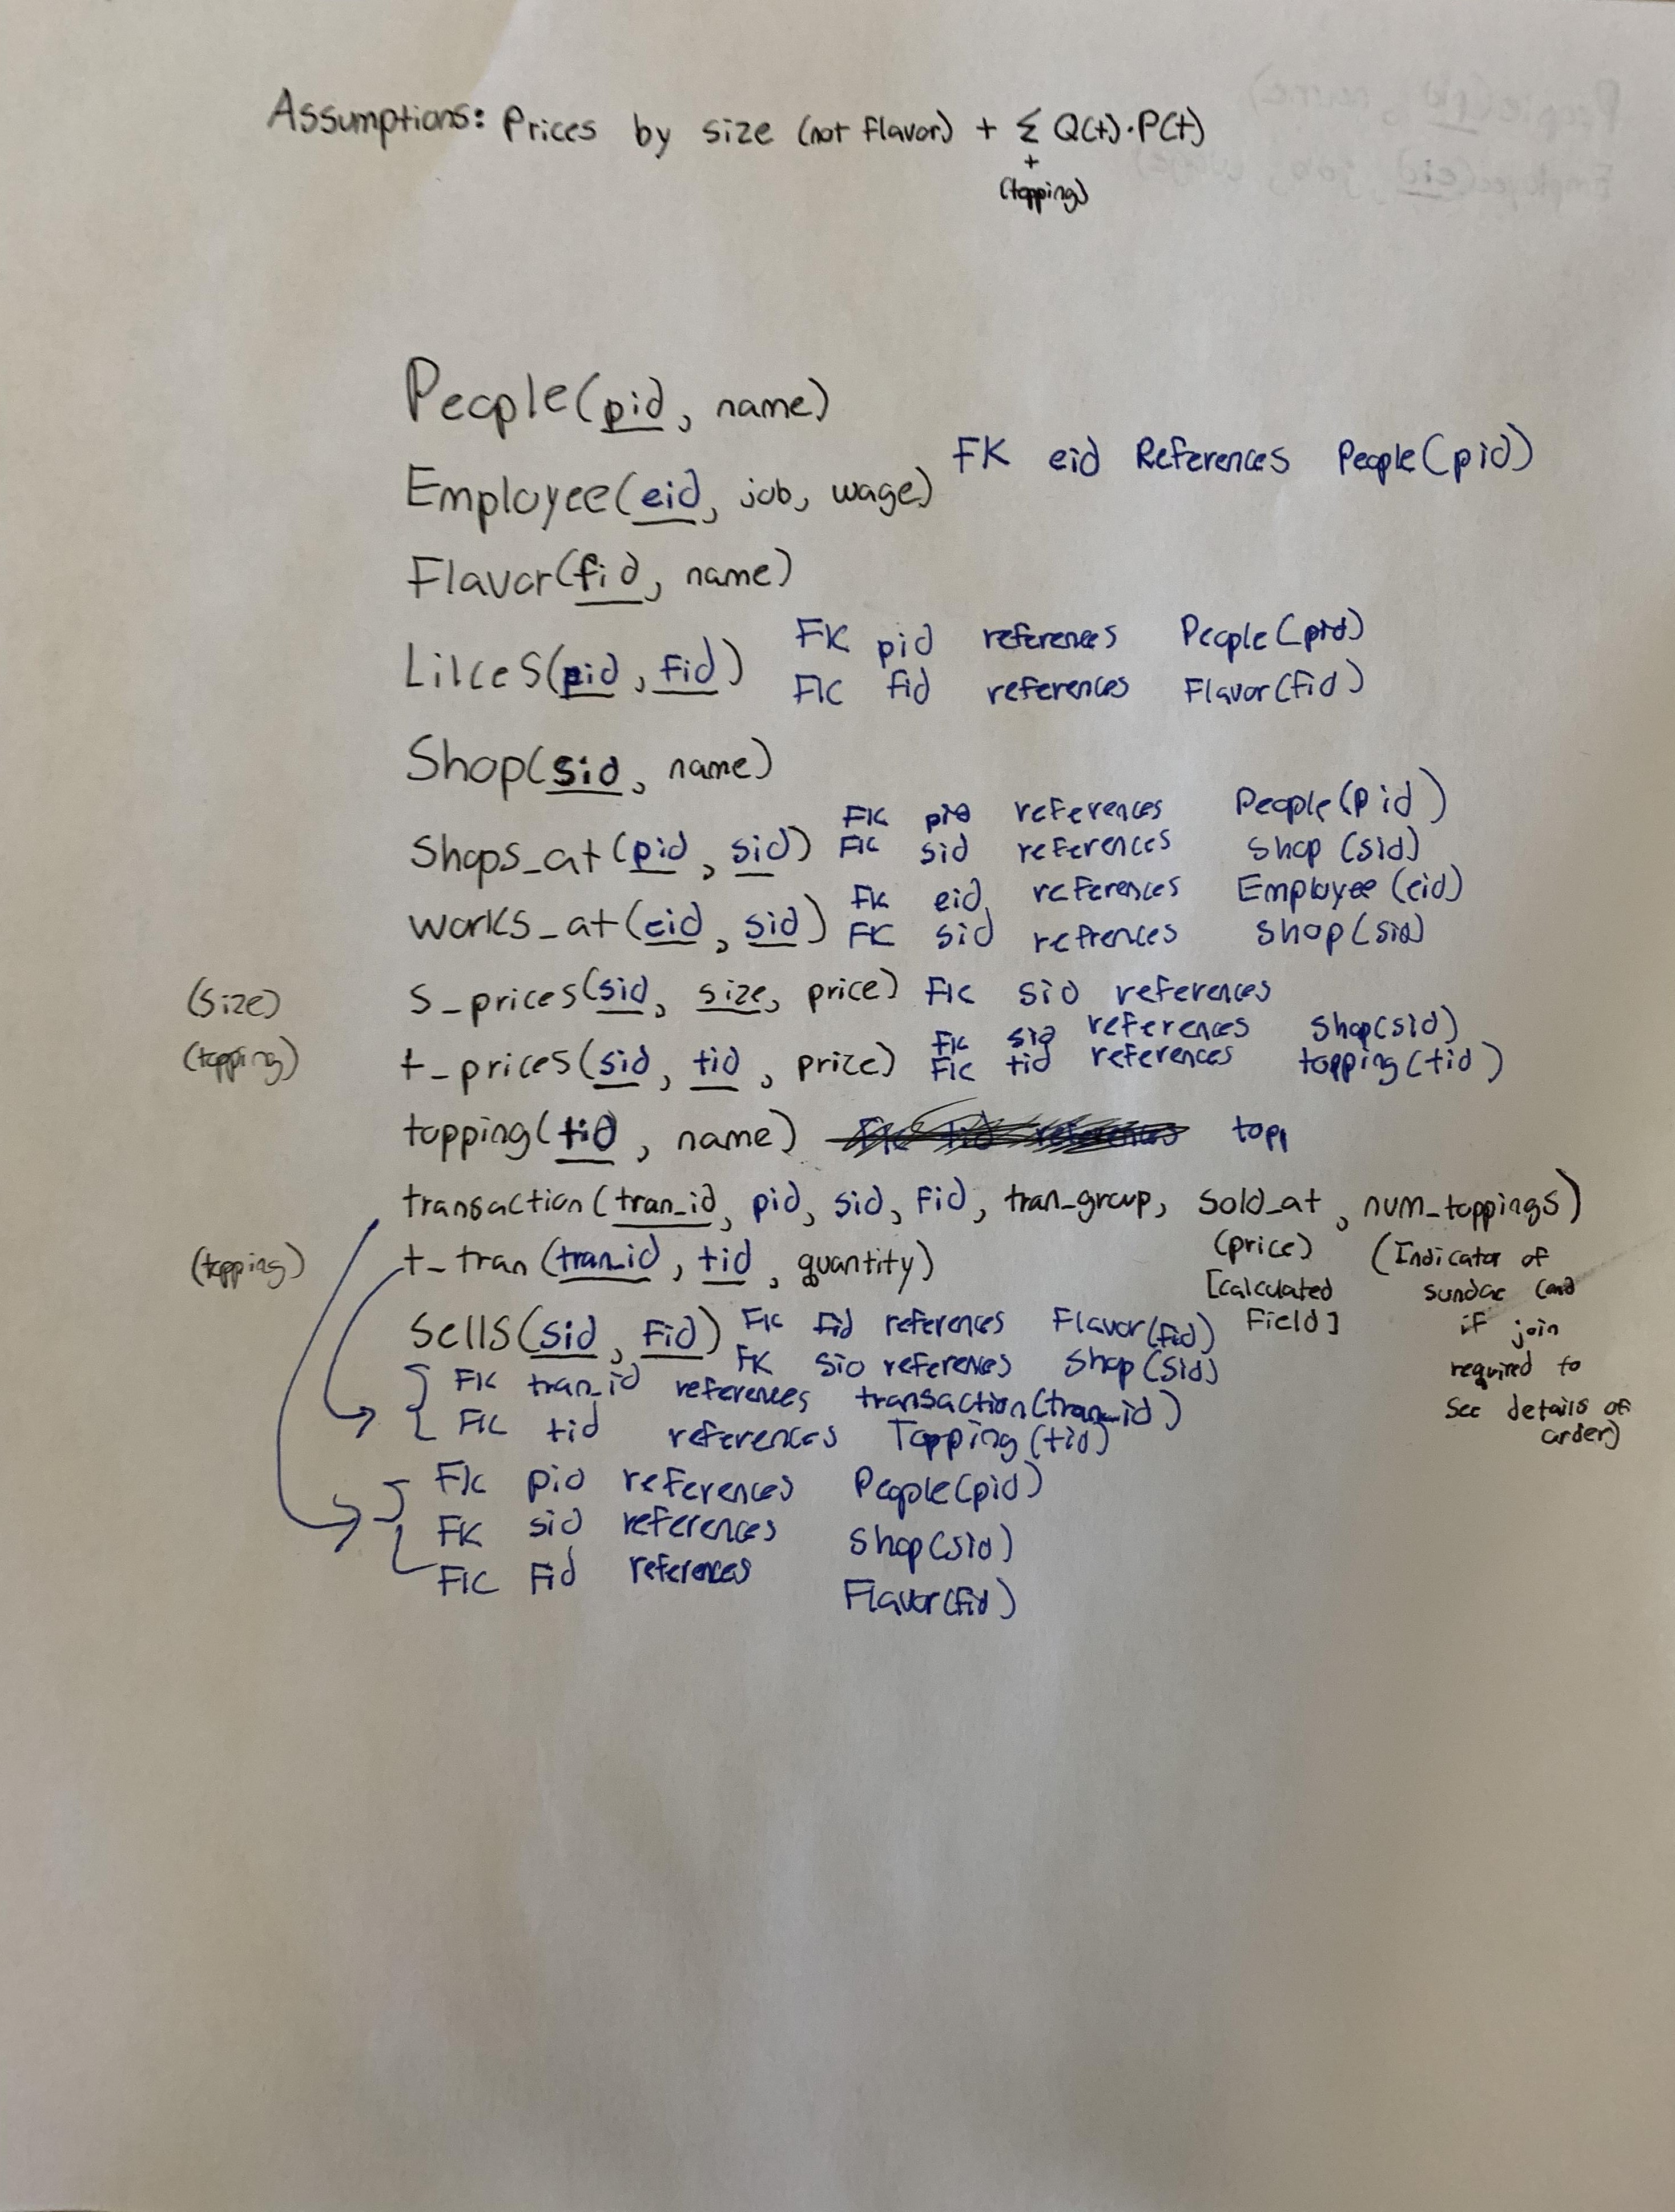 Assumptions: Prices by size (not flavor) + Σ Q(t)·P(t)
t
(topping)
People(pid, name)
Employee(eid, job, wage) FK eid References People(pid)
Flavor(fid, name)
Likes(pid, fid) FK pid references People(pid)
FK fid references Flavor(fid)
Shop(sid, name)
Shops_at(pid, sid) FK pid references People(pid)
FK sid references Shop(sid)
works_at(eid, sid) FK eid references Employee(eid)
FK sid refrences Shop(sid)
(size) s_prices(sid, size, price) FK sid references
(topping) t_prices(sid, tid, price) FK sid references Shop(sid)
FK tid references topping(tid)
topping(tid, name) FK tid references topp
transaction(tran_id, pid, sid, fid, tran_group, sold_at, num_toppings)
(price)
[calculated
Field]
(Indicator of
sundae (and
if join
required to
see details of
order)
(topping) t_tran(tran_id, tid, quantity)
Sells(sid, Fid) FK fid references Flavor(fid)
FK sid references Shop(sid)
FK tran_id references transaction(tran_id)
FK tid references Topping(tid)
FK pid references People(pid)
FK sid references Shop(sid)
FK Fid references Flavor(fid)